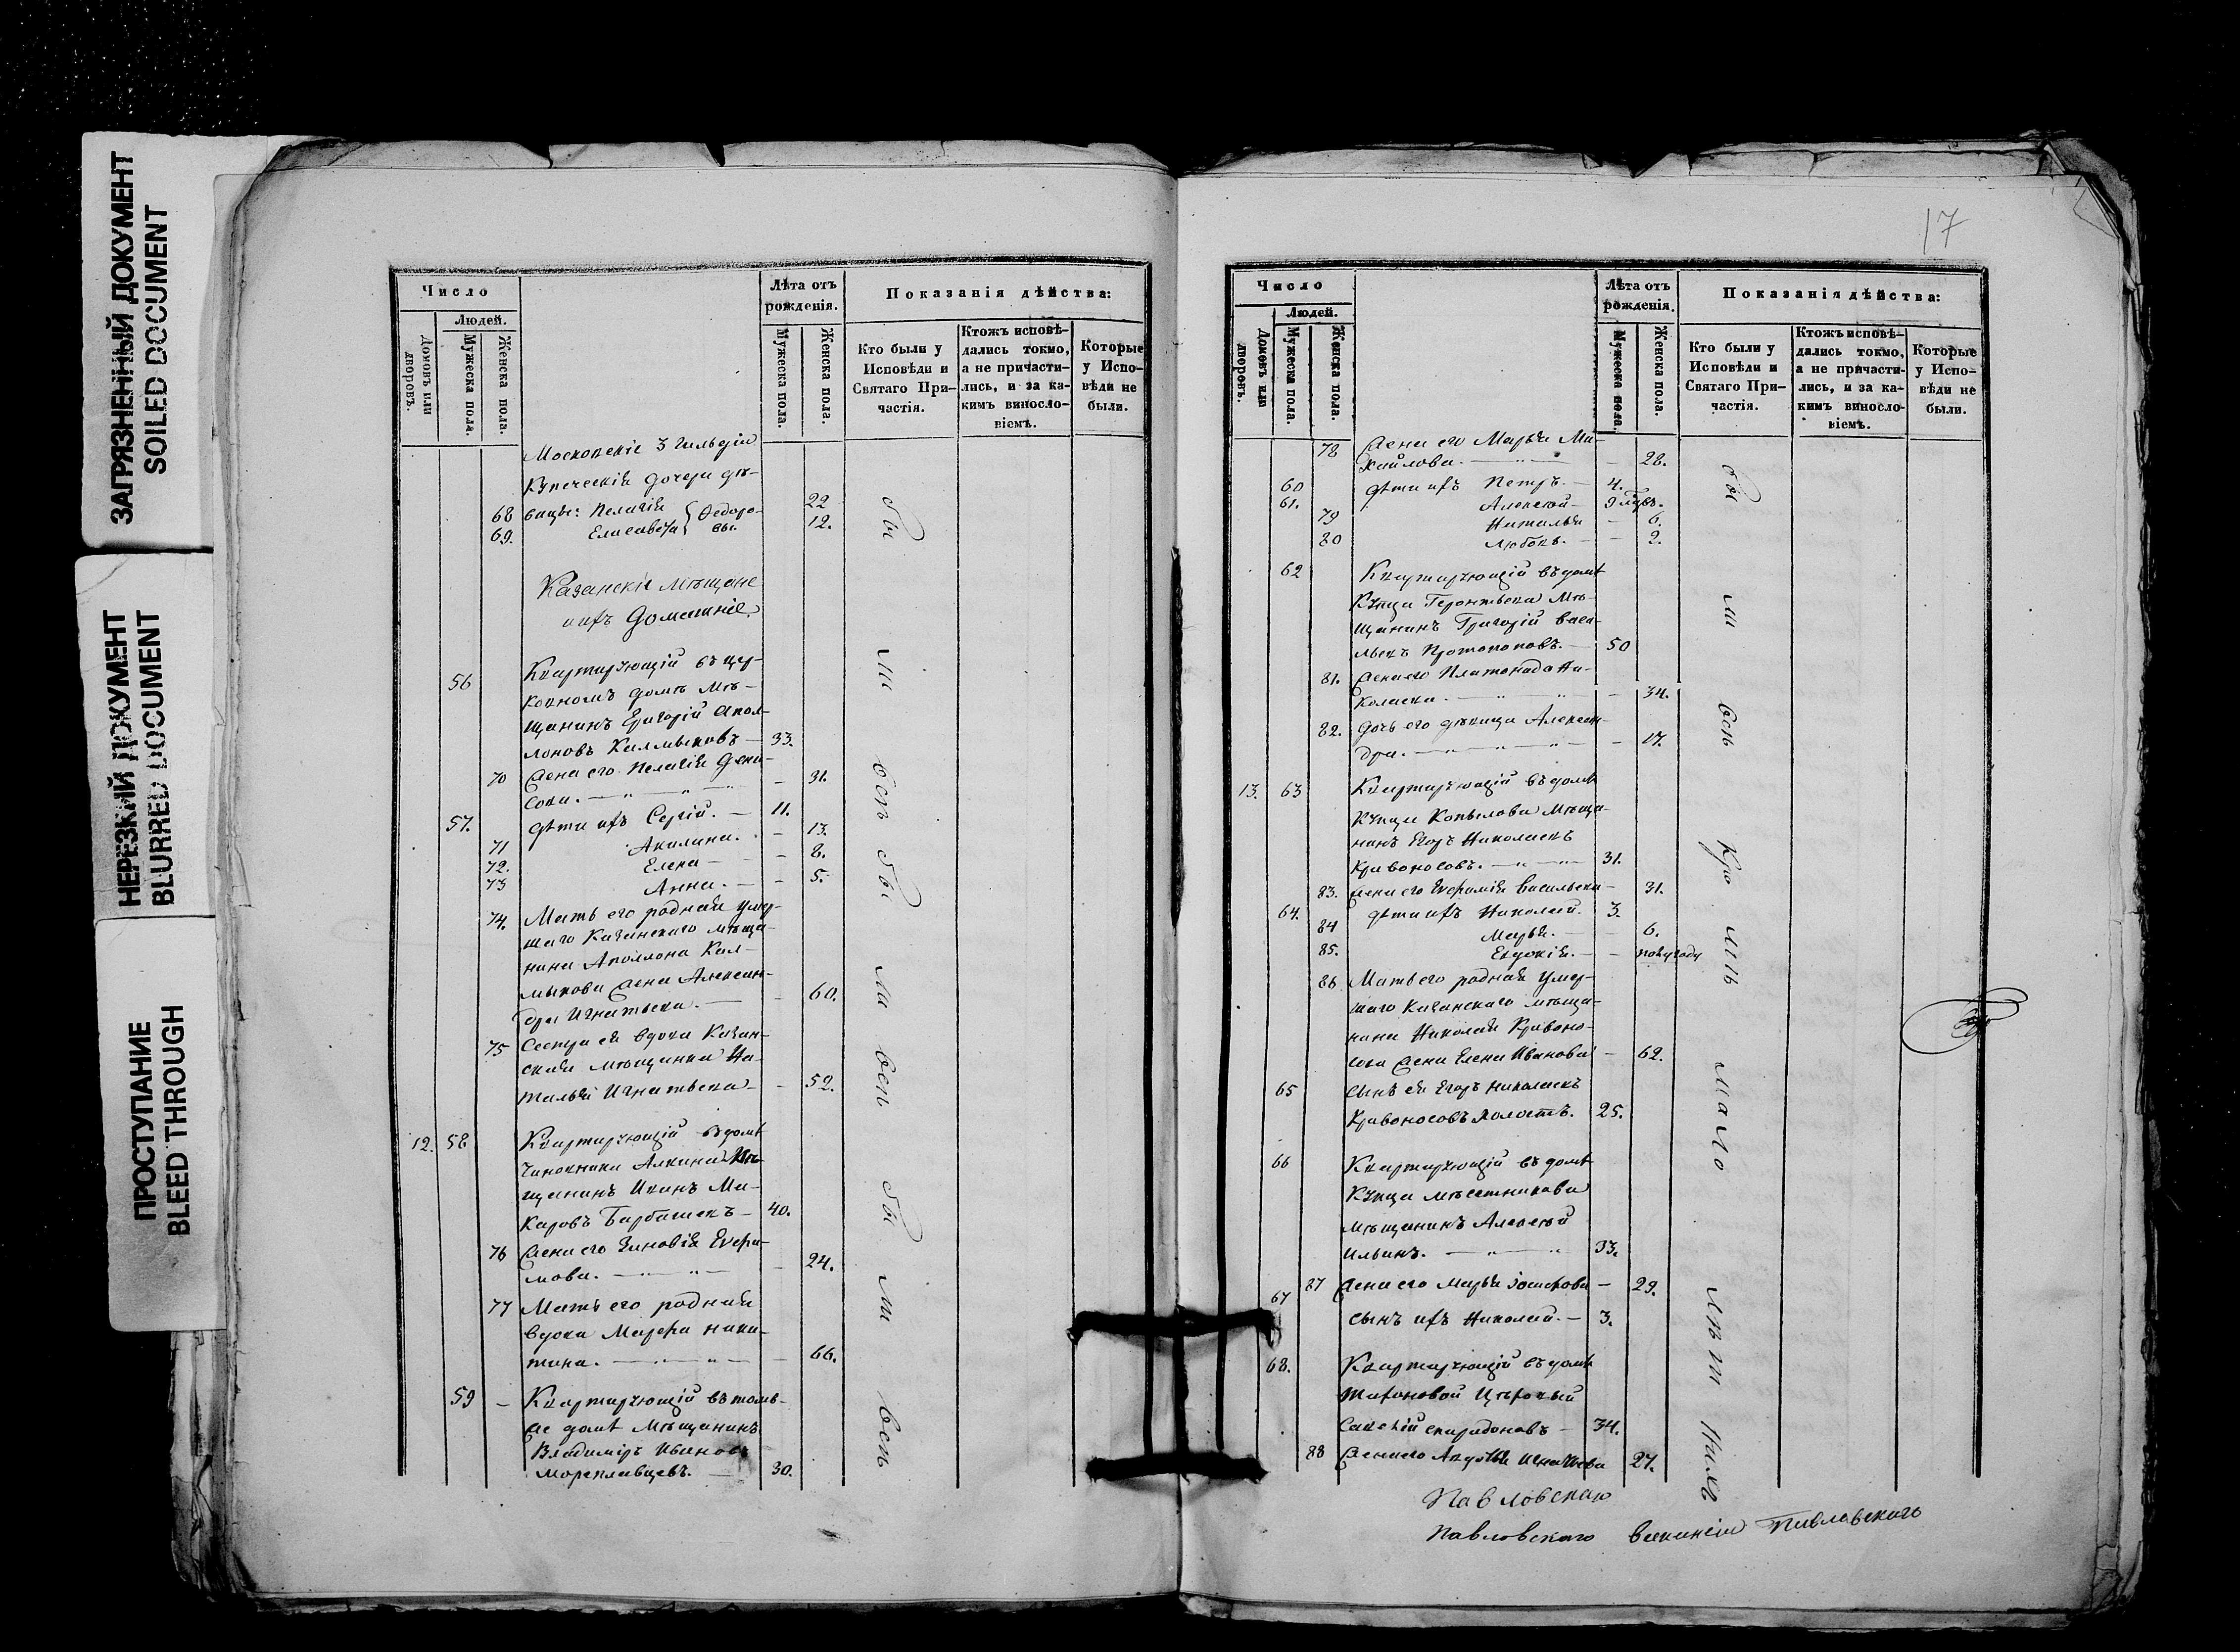 ЗАГРЯЗНЕННЫЙ ДОКУМЕНТ
SOILED DOCUMENT
НЕРЕЗКИЙ ДОКУМЕНТ
BLURRED DOCUMENT
ПРОСТУПАНИЕ
BLEED THROUGH
Число
Людей.
Домовъ или дворовъ.
Мужеска пола.
Женска пола.
Лѣта отъ
рожденія.
Мужеска пола.
Женска пола
Показанія дѣйства:
Кто были у
Исповѣди и
Святаго При-
частія.
Ктожъ исповѣ-
дались токмо,
а не причасти-
лись, и за ка-
кимъ виносло-
віемъ.
Которые
у Испо-
вѣди не
были.
Московскіе 3 гильдіи
Купеческія дочери дѣ-
68 вицы: Пелагія Федоро- 22
69. Елисавета вы. 12.
Казанскіе мѣщане
и ихъ домашніе.
56 Квартирующій въ цер-
ковномъ домѣ мѣ-
щанинъ Григорій Апол-
лоновъ Калмыковъ — 33.
70 Жена его Пелагія Дени-
сова. — 31.
57. Дѣти ихъ Сергій. — 11.
71 Акилина. — 13.
72. Елена — 8.
73 Анна. — 5.
74. Мать его родная умер-
шаго Казанскаго мѣща-
нина Аполлона Кал-
мыкова жена Алексан-
дра Игнатьева. — 60.
75 Сестра ея вдова Казан-
ская мѣщанка На-
талья Игнатьева — 52.
12. 58 Квартирующій въ домѣ
чиновника Алкина Мѣ-
щанинъ Иванъ Ма-
каровъ Барбашевъ — 40.
76 Жена его Зиновія Ефре-
мова. — 24.
77 Мать его родная
вдова Марфа Ники-
тина. — 66.
59 — Квартирующій въ томъ-
же домѣ Мѣщанинъ
Владиміръ Ивановъ
Мореплавцевъ. — 30.
бы
ли
всѣ
бы
ли
всѣ
бы
ли
всѣ
17
Число
Людей.
Домовъ или дворовъ.
Мужеска пола.
Женска пола.
Лѣта отъ
рожденія.
Мужеска пола.
Женска пола.
Показанія дѣйства:
Кто были у
Исповѣди и
Святаго При-
частія.
Ктожъ исповѣ-
дались токмо,
а не причасти-
лись, и за ка-
кимъ виносло-
віемъ.
Которые
у Испо-
вѣди не
были.
78 Жена его Марья Ми-
хайлова. — 28.
60 Дѣти ихъ Петръ. — 4.
61. Алексѣй — 9 мѣс.
79 Наталья — 6.
80 Любовь. — 2.
62 Квартирующій въ домѣ
Купца Геронтьева Мѣ-
щанинъ Григорій Васи-
льевъ Протопоповъ. — 50
81. Жена его Платонида Ни-
колаева. — 34.
82. Дочь его дѣвица Алексан-
дра. — 17.
13. 63 Квартирующій въ домѣ
Купца Копылова Мѣща-
нинъ Егоръ Николаевъ
Кривоносовъ. — 31.
83. Жена его Евфимія Васильева — 31.
64. Дѣти ихъ Николай. 3.
84 Марья. — 6.
85. Евдокія. — полугоду
86 Мать его родная умер-
шаго Казанскаго мѣща-
нина Николая Кривоно-
сова жена Елена Иванова — 62.
65 Сынъ ея Егоръ Николаевъ
Кривоносовъ холостъ. 25.
66 Квартирующій въ домѣ
Купца Мѣстникова
мѣщанинъ Алексѣй
Ильинъ. — 33.
87 Жена его Марья — 29.
67 Сынъ ихъ Николай. — 3.
68. Квартирующій въ домѣ
Тихоновой Цеховый
Спиридоновъ — 34.
88 Жена его Авдотья Игнатьева 27.
бы
ли
всѣ
кро
мѣ
мало
лѣт
нихъ
Павловскаго
Павловскаго Павловскаго